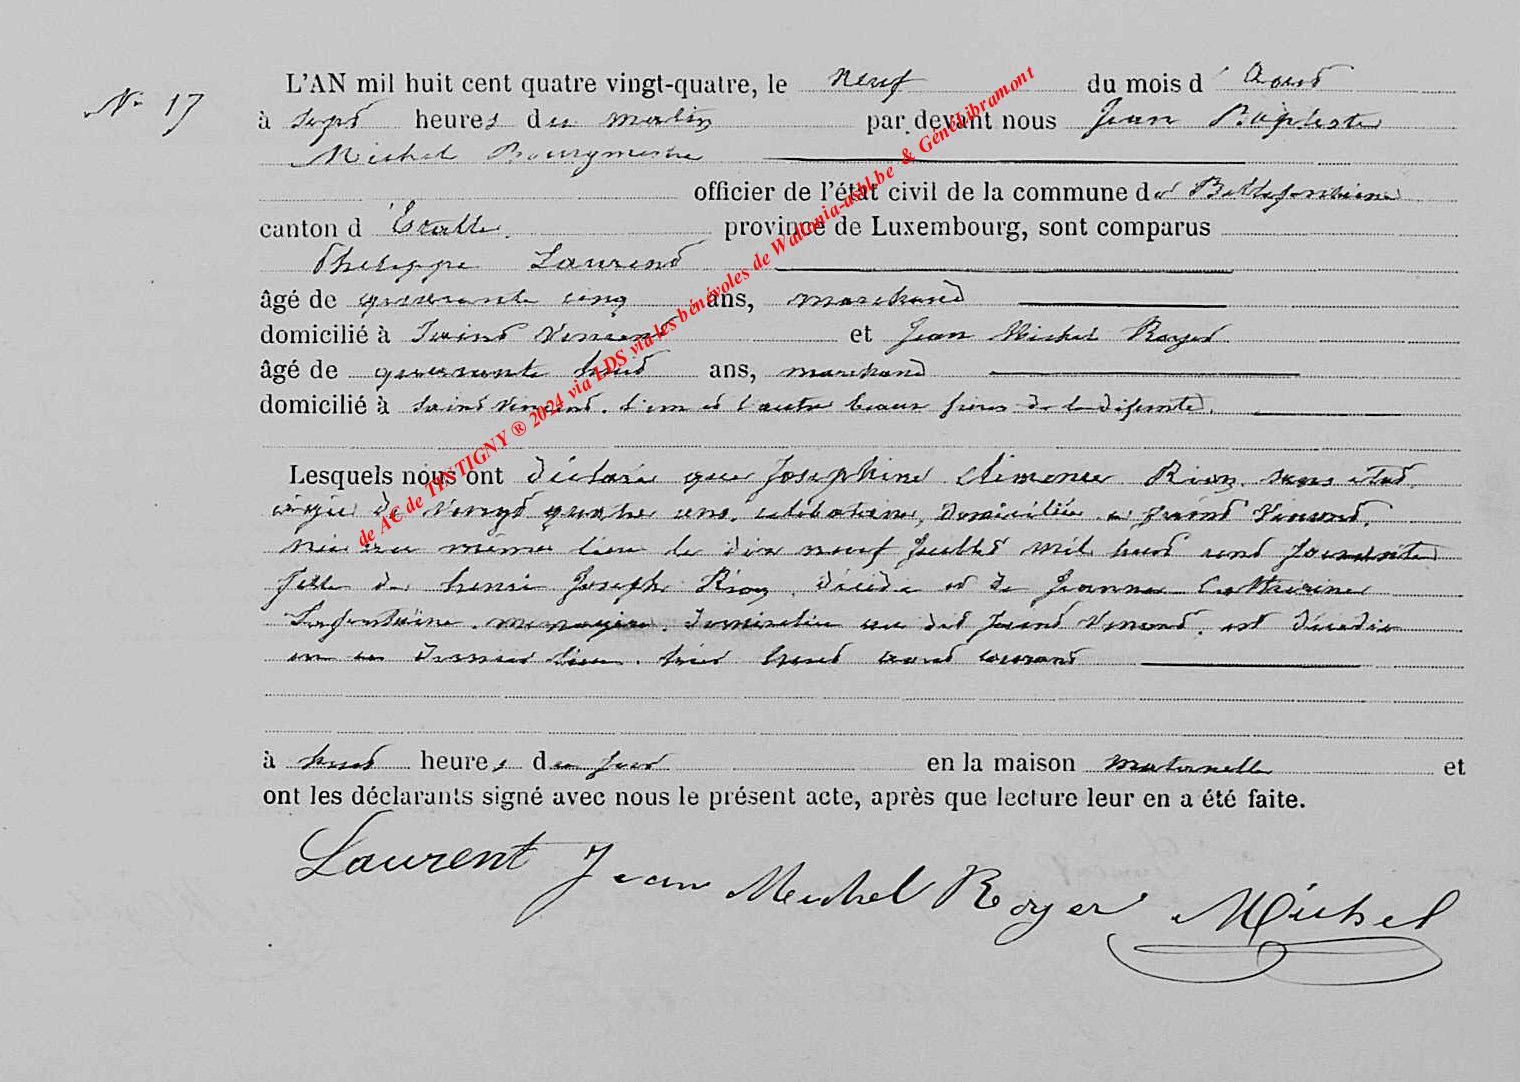 L'AN mil huit cent quatre vingt-quatre, le neuf du mois d' Aout
N° 17
à sept heures du matin par devant nous Jean Baptiste
Michel Bourgmestre
officier de l'état civil de la commune de Bellefontaine
canton d'Etalle province de Luxembourg, sont comparus
Philippe Laurent
âgé de quarante cinq ans, marchand
domicilié à Saint Vincent et Jean Michel Royer
âgé de quarante huit ans, marchand
domicilié à Saint Vincent. l'un et l'autre beaux frères de la défunte.
Lesquels nous ont déclaré que Joséphine Rion sans état.
âgée de vingt quatre ans. célibataire, domiciliée à Saint Vincent.
née au même lieu le dix neuf Juillet mil huit cent soixante
fille de henri Joseph Rion. décédé et de Jeanne Catherine
Lafontaine. ménagère. domiciliée au dit Saint Vincent. est décédée
en ce dernier lieu. hier huit aout courant
à huit heures du soir en la maison maternelle et
ont les déclarants signé avec nous le présent acte, après que lecture leur en a été faite.
Laurent Jean Michel Royer Michel
de AC de TINTIGNY ® 2024 via LDS via les bénévoles de Wallonia-asbl.be & GénéLibramont